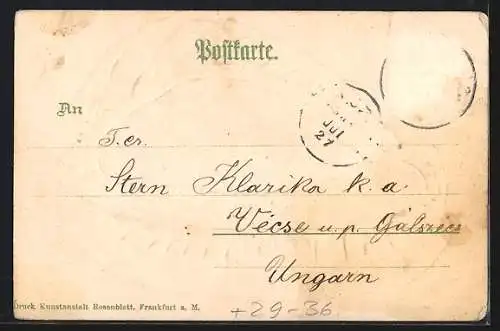 Postkarte.
An
T. cz.
Stern Klarika k. a.
Vécse u. p. Gálszécs
Ungarn
JUI
27
Druck Kunstanstalt Rosenblatt, Frankfurt a. M.
+29-36